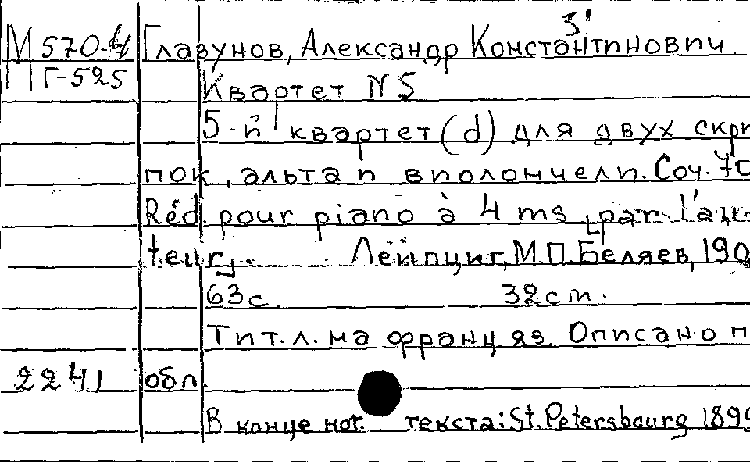 3'
М 570-4 Глазунов, Александр Константинович
М Г-525
Квартет N 5
5-й квартет (d) для двух скри
пок, альта и виолончели. Соч. 70
Réd. pour piano à 4 ms [par l'au
teur]. Лейпциг, М.П. Беляев, 190
63 с. 32 cm.
Тит. л. на франц яз. Описано п
2241 обл
В конце нот. текста: St. Petersbourg 189